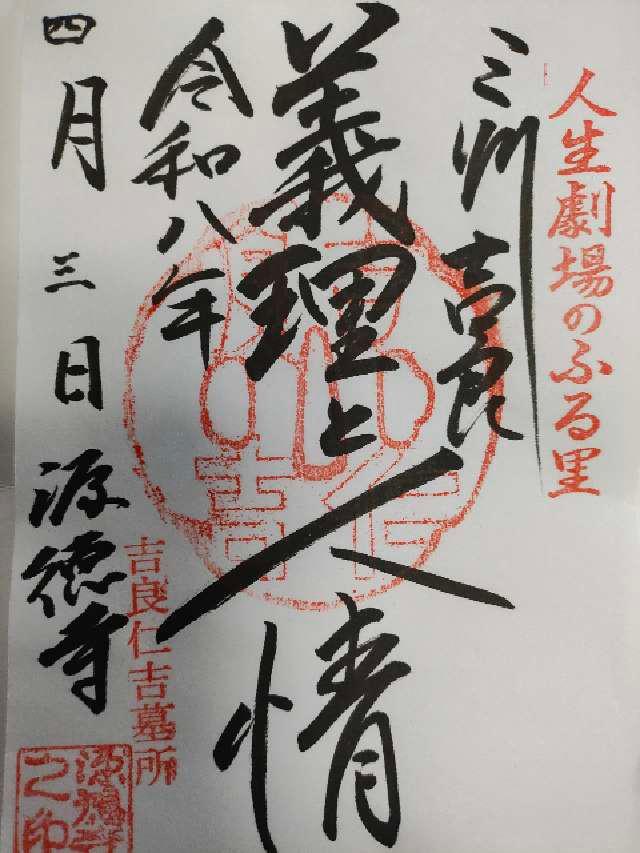 人生劇場のふる里
三州吉良
義理と人情
令和八年
四月三日 源徳寺
吉良仁吉墓所
源徳寺之印